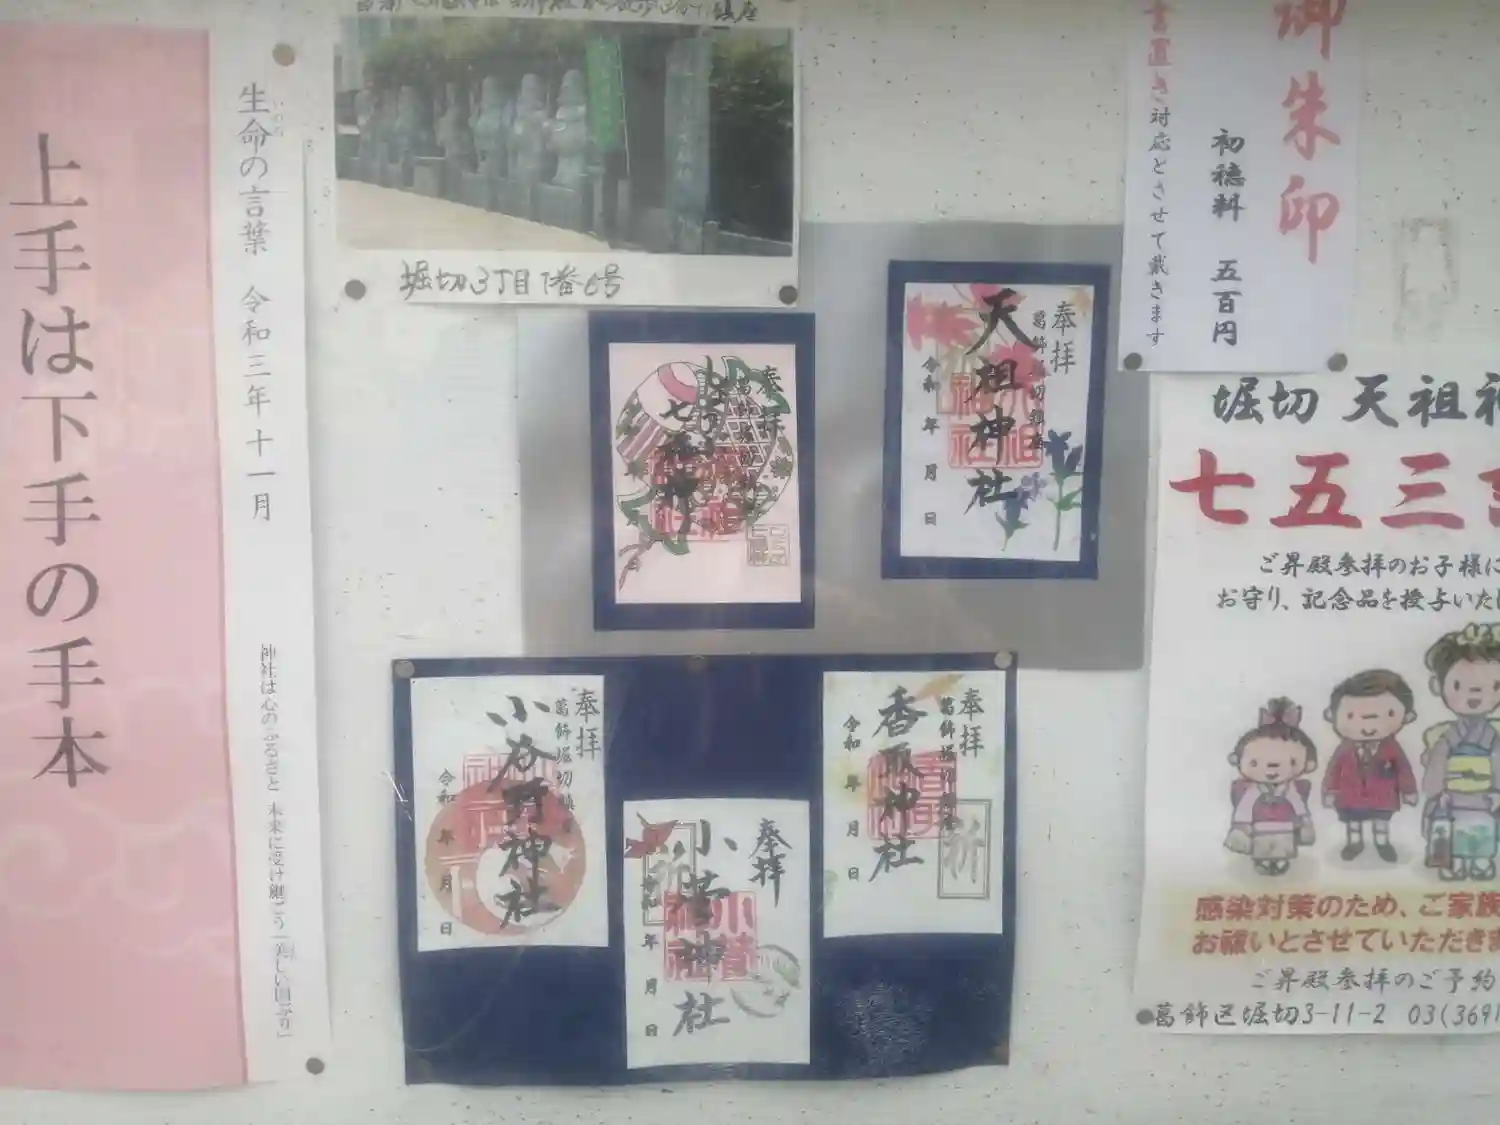 上手は下手の手本
生命の言葉 令和三年十一月
いのち
神社は心のふるさと 未来に受け継ごう「美しい国ぶり」
堀切3丁目1番6号
奉拝
七福神
奉拝
葛飾堀切鎮座
天祖神社
令和 年 月 日
奉拝
葛飾堀切鎮座
小谷野神社
令和 年 月 日
奉拝
小菅神社
年 月 日
奉拝
葛飾堀切鎮座
香取神社
祈
令和 年 月 日
御朱印
初穂料 五百円
書置き対応とさせて戴きます
堀切 天祖神
七五三
ご昇殿参拝のお子様に
お守り、記念品を授与いた
感染対策のため、ご家族
お祓いとさせていただきま
ご昇殿参拝のご予約
葛飾区堀切3-11-2 03(3691